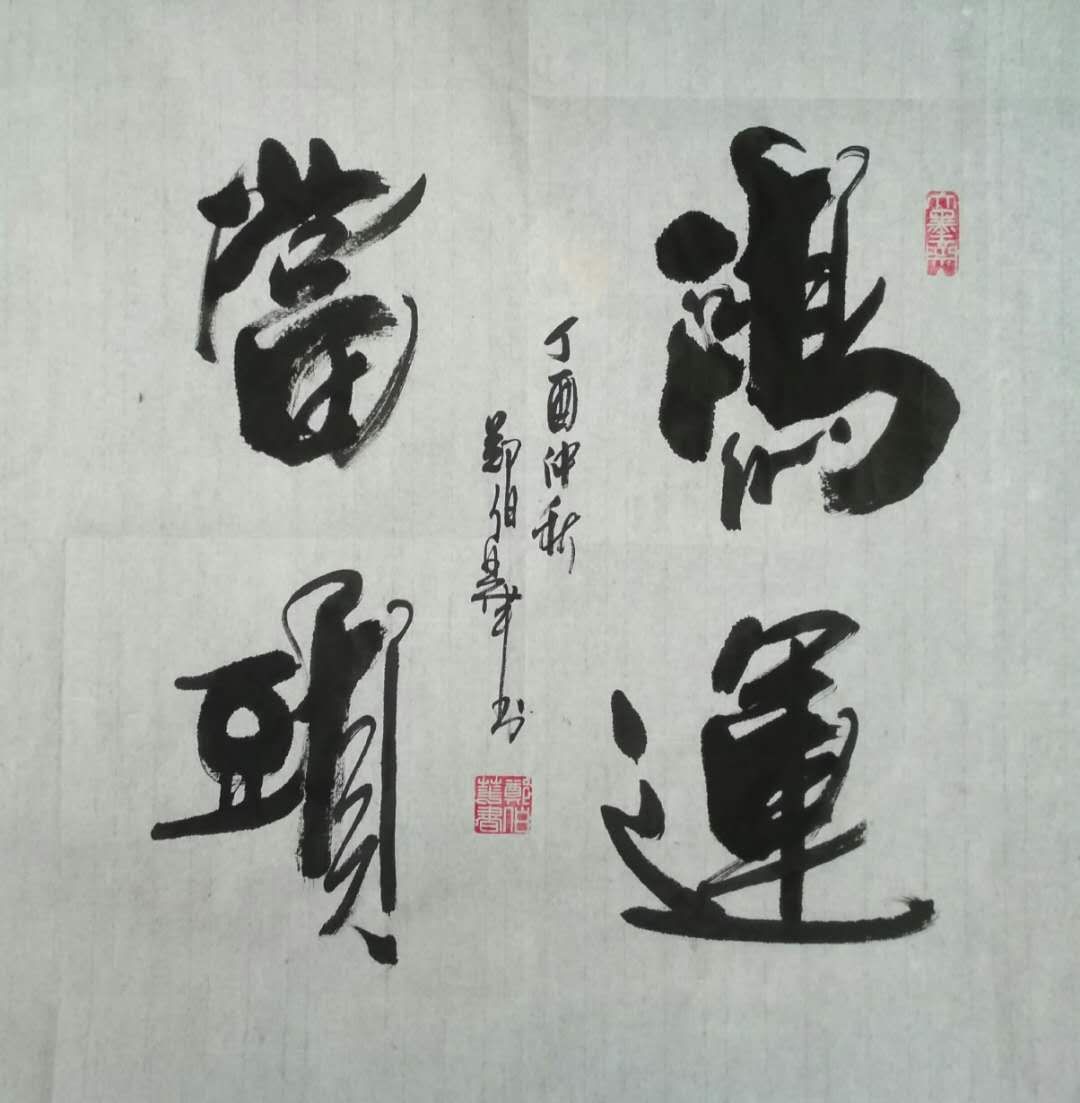 鴻運
當頭
丁酉仲秋
鄭伯華书
鄭伯
華書